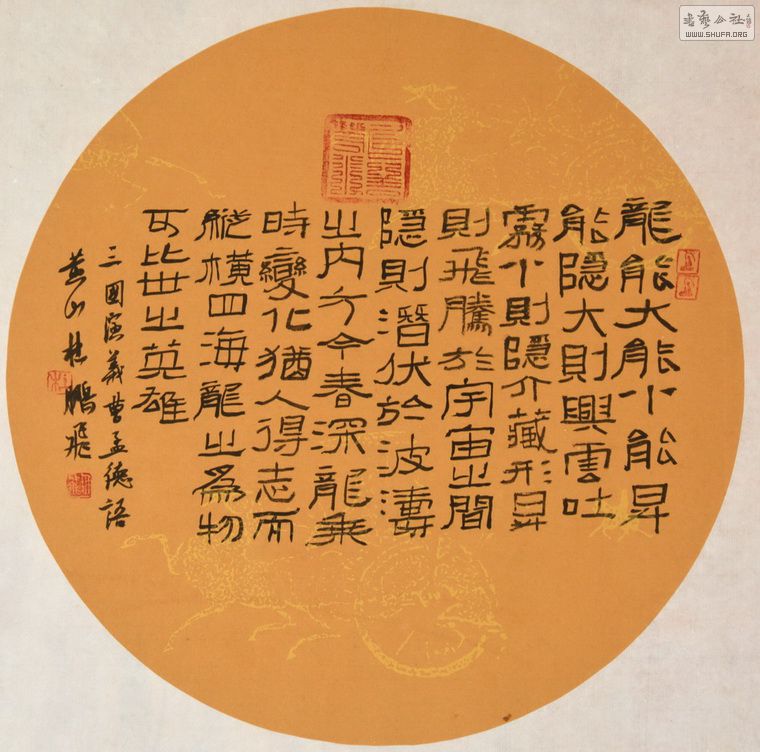 龍能大能小能昇
能隱大則興雲吐
霧小則隱介藏形昇
則飛騰於宇宙之間
隱則潛伏於波濤
之内方今春深龍乘
時變化猶人得志而
縱橫四海龍之爲物
可比世之英雄
三國演義曹孟德語
黄山林鵬飛
書藝公社
WWW.SHUFA.ORG